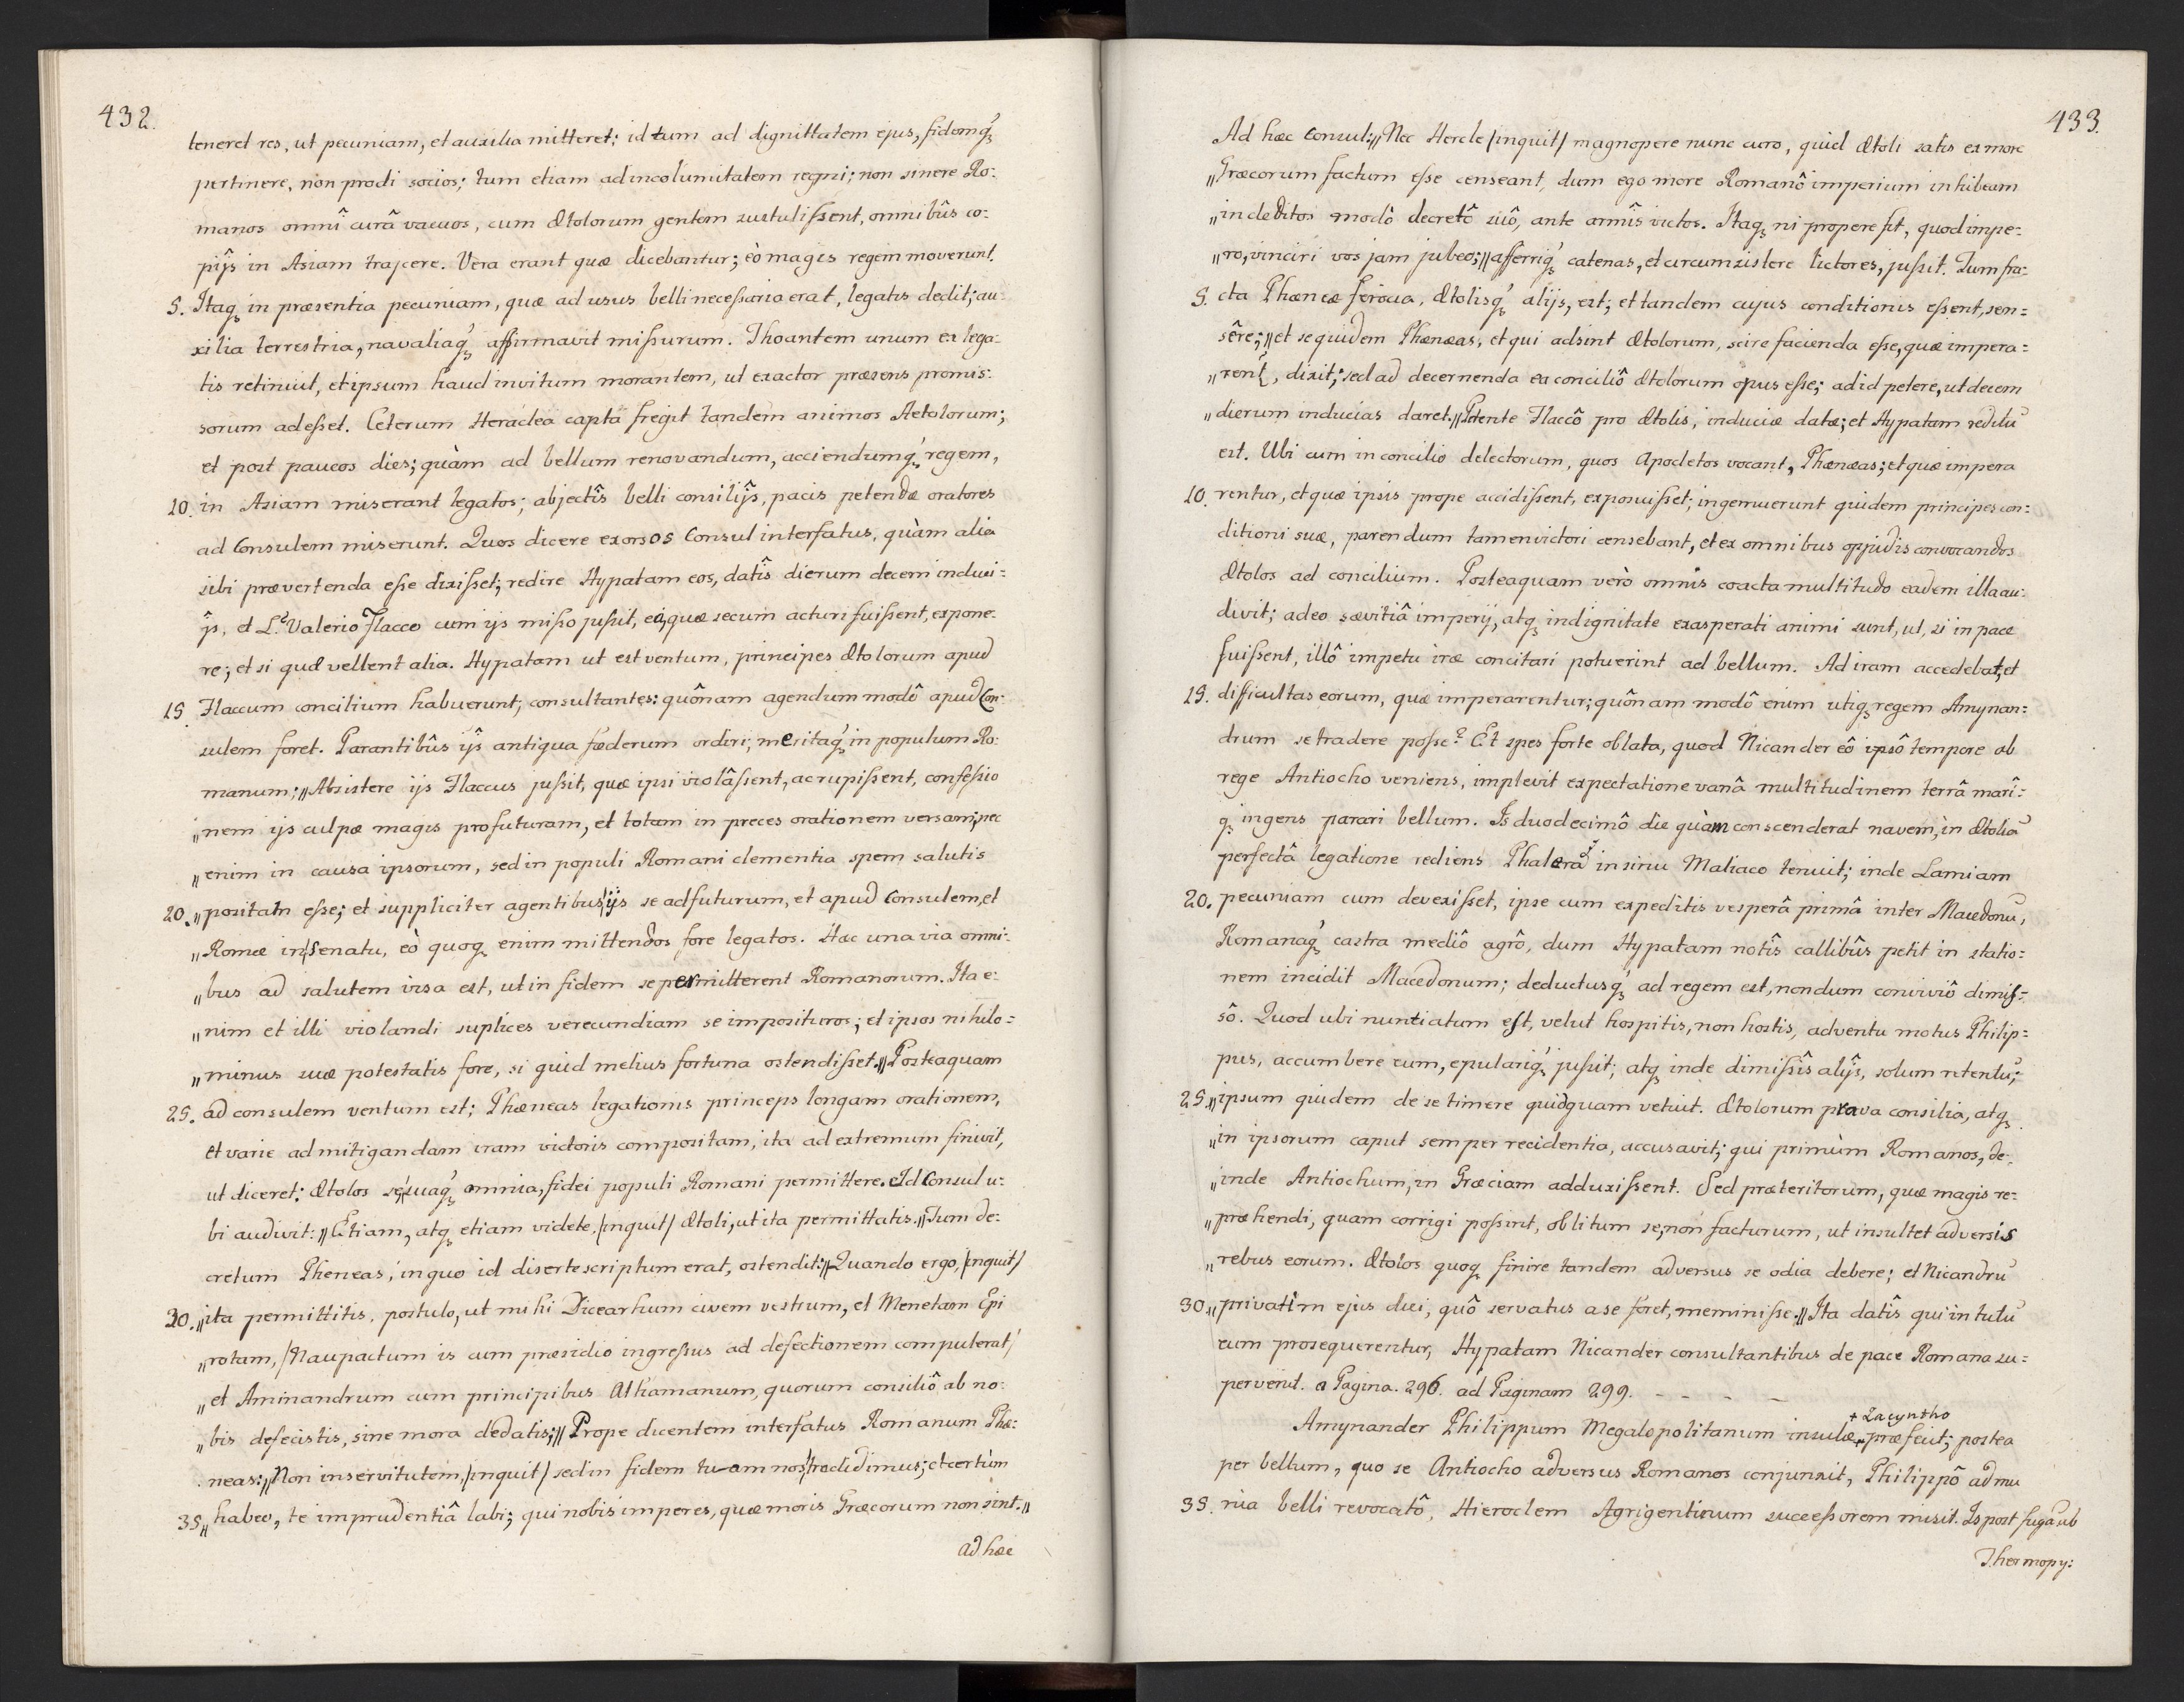 432.
teneret res, ut pecuniam, et auxilia mitteret; id tum ad dignittatem ejus, fidemq́ꝫ
pertinere, non prodi socios; tum etiam ad incolumitatem regni; non sinere Ro:
manos omnî curâ vacuos, cum Ætolorum gentem sustulissent, omnibûs co:
pijs in Asiam trajcere. Vera erant quæ dicebantur; eò magis regem moverunt.
5. Itaqꝫ in præsentia pecuniam, quæ ad usus belli necessaria erat, legatis dedit; au:
xilia terrestria, navaliaq́ꝫ affirmavit missurum. Thoantem unum ex lega:
tis retinuit, et ipsum haud invitum morantem, ut exactor præsens promis:
sorum adesset. Ceterum Heraclea captâ fregit tandem animos Aetolorum;
et post paucos dies; quàm ad bellum renovandum, acciendumq́ꝫ regem,
10. in Asiam miserant legatos; abjectîs belli consilijs, pacis petendæ oratores
ad Consulem miserunt. Quos dicere exorsos Consul interfatus, quàm alia
sibi prævertenda esse dixisset; redire Hypatam eos, datîs dierum decem induci:
js, et L.º Valerio Flacco cum ijs misso jussit, ea, quæ secum acturi fuissent, expone:
re; et si quæ vellent alia. Hypatam ut est ventum, principes Ætolorum apud
15. Flaccum concilium habuerunt, consultantes: quônam agendum modô apud Con:
sulem foret. Parantibûs ijs antiqua fæderum ordiri; meritaq́ꝫ in populum Ro:
manum; „Absistere ijs Flaccus jussit, quæ ipsi violâssent, ac rupissent, confessio
„nem ijs culpæ magis profuturam, et totam in preces orationem versam; nec
„enim in causa ipsorum, sed in populi Romani clementia spem salutis
20. „positam esse; et suppliciter agentibus ijs se adfuturum, et apud Consulem, et
„Romæ in Senatu, eò quoqꝫ enim mittendos fore legatos. Hæc una via omni:
„bus ad salutem visa est, ut in fidem se permitterent Romanorum. Ita e:
„nim et illi violandi suplices verecundiam se imposituros; et ipsos nihilo:
„minus suæ potestatis fore, si quid melius fortuna ostendisset.„ Posteaquam
25. ad consulem ventum est; Phæneas legationis princeps longam orationem,
et varie ad mitigandam iram victoris compositam, ita ad extremum finivit,
ut diceret: Ætolos se, suaq́ꝫ omnia, fidei populi Romani permittere. Id Consul u:
bi audivit: „Etiam, atqꝫ etiam videte, /inquit/ Ætoli, ut ita permittatis.„ Tum de:
cretum Pheneas, in quo id diserte scriptum erat, ostendit: „Quando ergo, /inquit/
30. „ita permittitis, postulo, ut mihi Dicearhum civem vestrum, et Menetam Epi
„rotam, /Naupactum is cum præsidio ingressus ad defectionem compulerat/
„et Aminandrum cum principibus Athamanum, quorum consiliô ab no:
„bis defecistis, sine mora dedatis;„ Prope dicentem interfatus Romanum Phæ:
neas: „Non in servitutem, /inquit/ sed in fidem tuam nos tradidimus; et certùm
35. „habeo, te imprudentiâ labi; qui nobis imperes, quæ moris Græcorum non sint.„
ad hæc
433.
Ad hæc Consul: „Nec Hercle /inquit/ magnopere nunc curo, quid Ætoli satis ex more
„Græcorum factum esse censeant, dum ego more Romanô imperium inhibeam
„in deditos modò decretô suô, ante armîs victos. Itaqꝫ ni propere fit, quod impe:
„ro, vinciri vos jam jubeo;„ afferriq́ꝫ catenas, et circumsistere lictores, jussit. Tum fra:
5. cta Phæneæ ferocia, Ætolisq́ꝫ alijs, est; et tandem cujus conditionis essent, sen:
sêre; „et se quidem Phæneas, et qui adsint Ætolorum, scire facienda esse, quæ impera:
„rent, dixit; sed ad decernenda ea conciliô Ætolorum opus esse; ad id petere, ut decem
„dierum inducias daret.„ Petente Flaccô pro Ætolis, induciæ datæ; et Hypatam reditū
est. Ubi cum in concilio delectorum, quos Apocletos vocant, Phæneas; et quæ impera
10. rentur, et quæ ipsis prope accidissent, exposuisset; ingemuerunt quidem principes con:
ditioni suæ, parendum tamen victori censebant, et ex omnibus oppidis convocandos
Ætolos ad concilium. Posteaquam verò omnis coacta multitudo eadem illa au:
divit; adeo sævitiâ imperij, atqꝫ indignitate exasperati animi sunt, ut, si in pace
fuissent, illô impetu iræ concitari potuerint ad bellum. Ad iram accedebat, et
15. difficultas eorum, quæ imperarentur; quônam modô enim utiqꝫ regem Amynan:
drum se tradere posse? Et spes forte oblata, quod Nicander eô ipsô tempore ab
rege Antiocho veniens, implevit expectatione vanâ multitudinem terrâ marî:
qꝫ ingens parari bellum. Is duodecimô die quàm conscenderat navem, in Ætoliā
perfectâ legatione rediens Phalera in sinu Maliaco tenuit; inde Lamiam
20. pecuniam cum devexisset, ipse cum expeditis vesperâ primâ inter Macedonū,
Romanaq́ꝫ castra mediô agrô, dum Hypatam notîs callibûs petit in statio:
nem incidit Macedonum; deductusq́ꝫ ad regem est, nondum conviviô dimis:
sô. Quod ubi nuntiatum est, velut hospitis, non hostis, adventu motus Philip:
pus, accumbere eum, epulariq́ꝫ jussit; atqꝫ inde dimissîs alijs, solum retentū;
25. „ipsum quidem de se timere quidquam vetuit. Ætolorum prava consilia, atqꝫ
„in ipsorum caput semper recidentia, accusavit; qui primùm Romanos, de:
„inde Antiochum, in Græciam adduxissent. Sed præteritorum, quæ magis re:
„præhendi, quam corrigi possint, oblitum se, non facturum, ut insultet adversis
„rebus eorum. Ætolos quoqꝫ finire tandem adversus se odia debere; et Nicandrū
30. „privatim ejus diei, quô servatus a se foret, meminisse.„ Ita datîs qui in tutū
eum prosequerentur, Hypatam Nicander consultantibus de pace Romana su:
pervenit. a Pagina. 296. ad Paginam 299. - - - -
+ Zacyntho
Amynander Philippum Megalopolitanum insulæ + præfecit; postea
per bellum, quo se Antiocho adversus Romanos conjunxit, Philippô ad mu
35. nia belli revocatô, Hieroclem Agrigentinum successorem misit. Is post fugā ab
Thermopy: